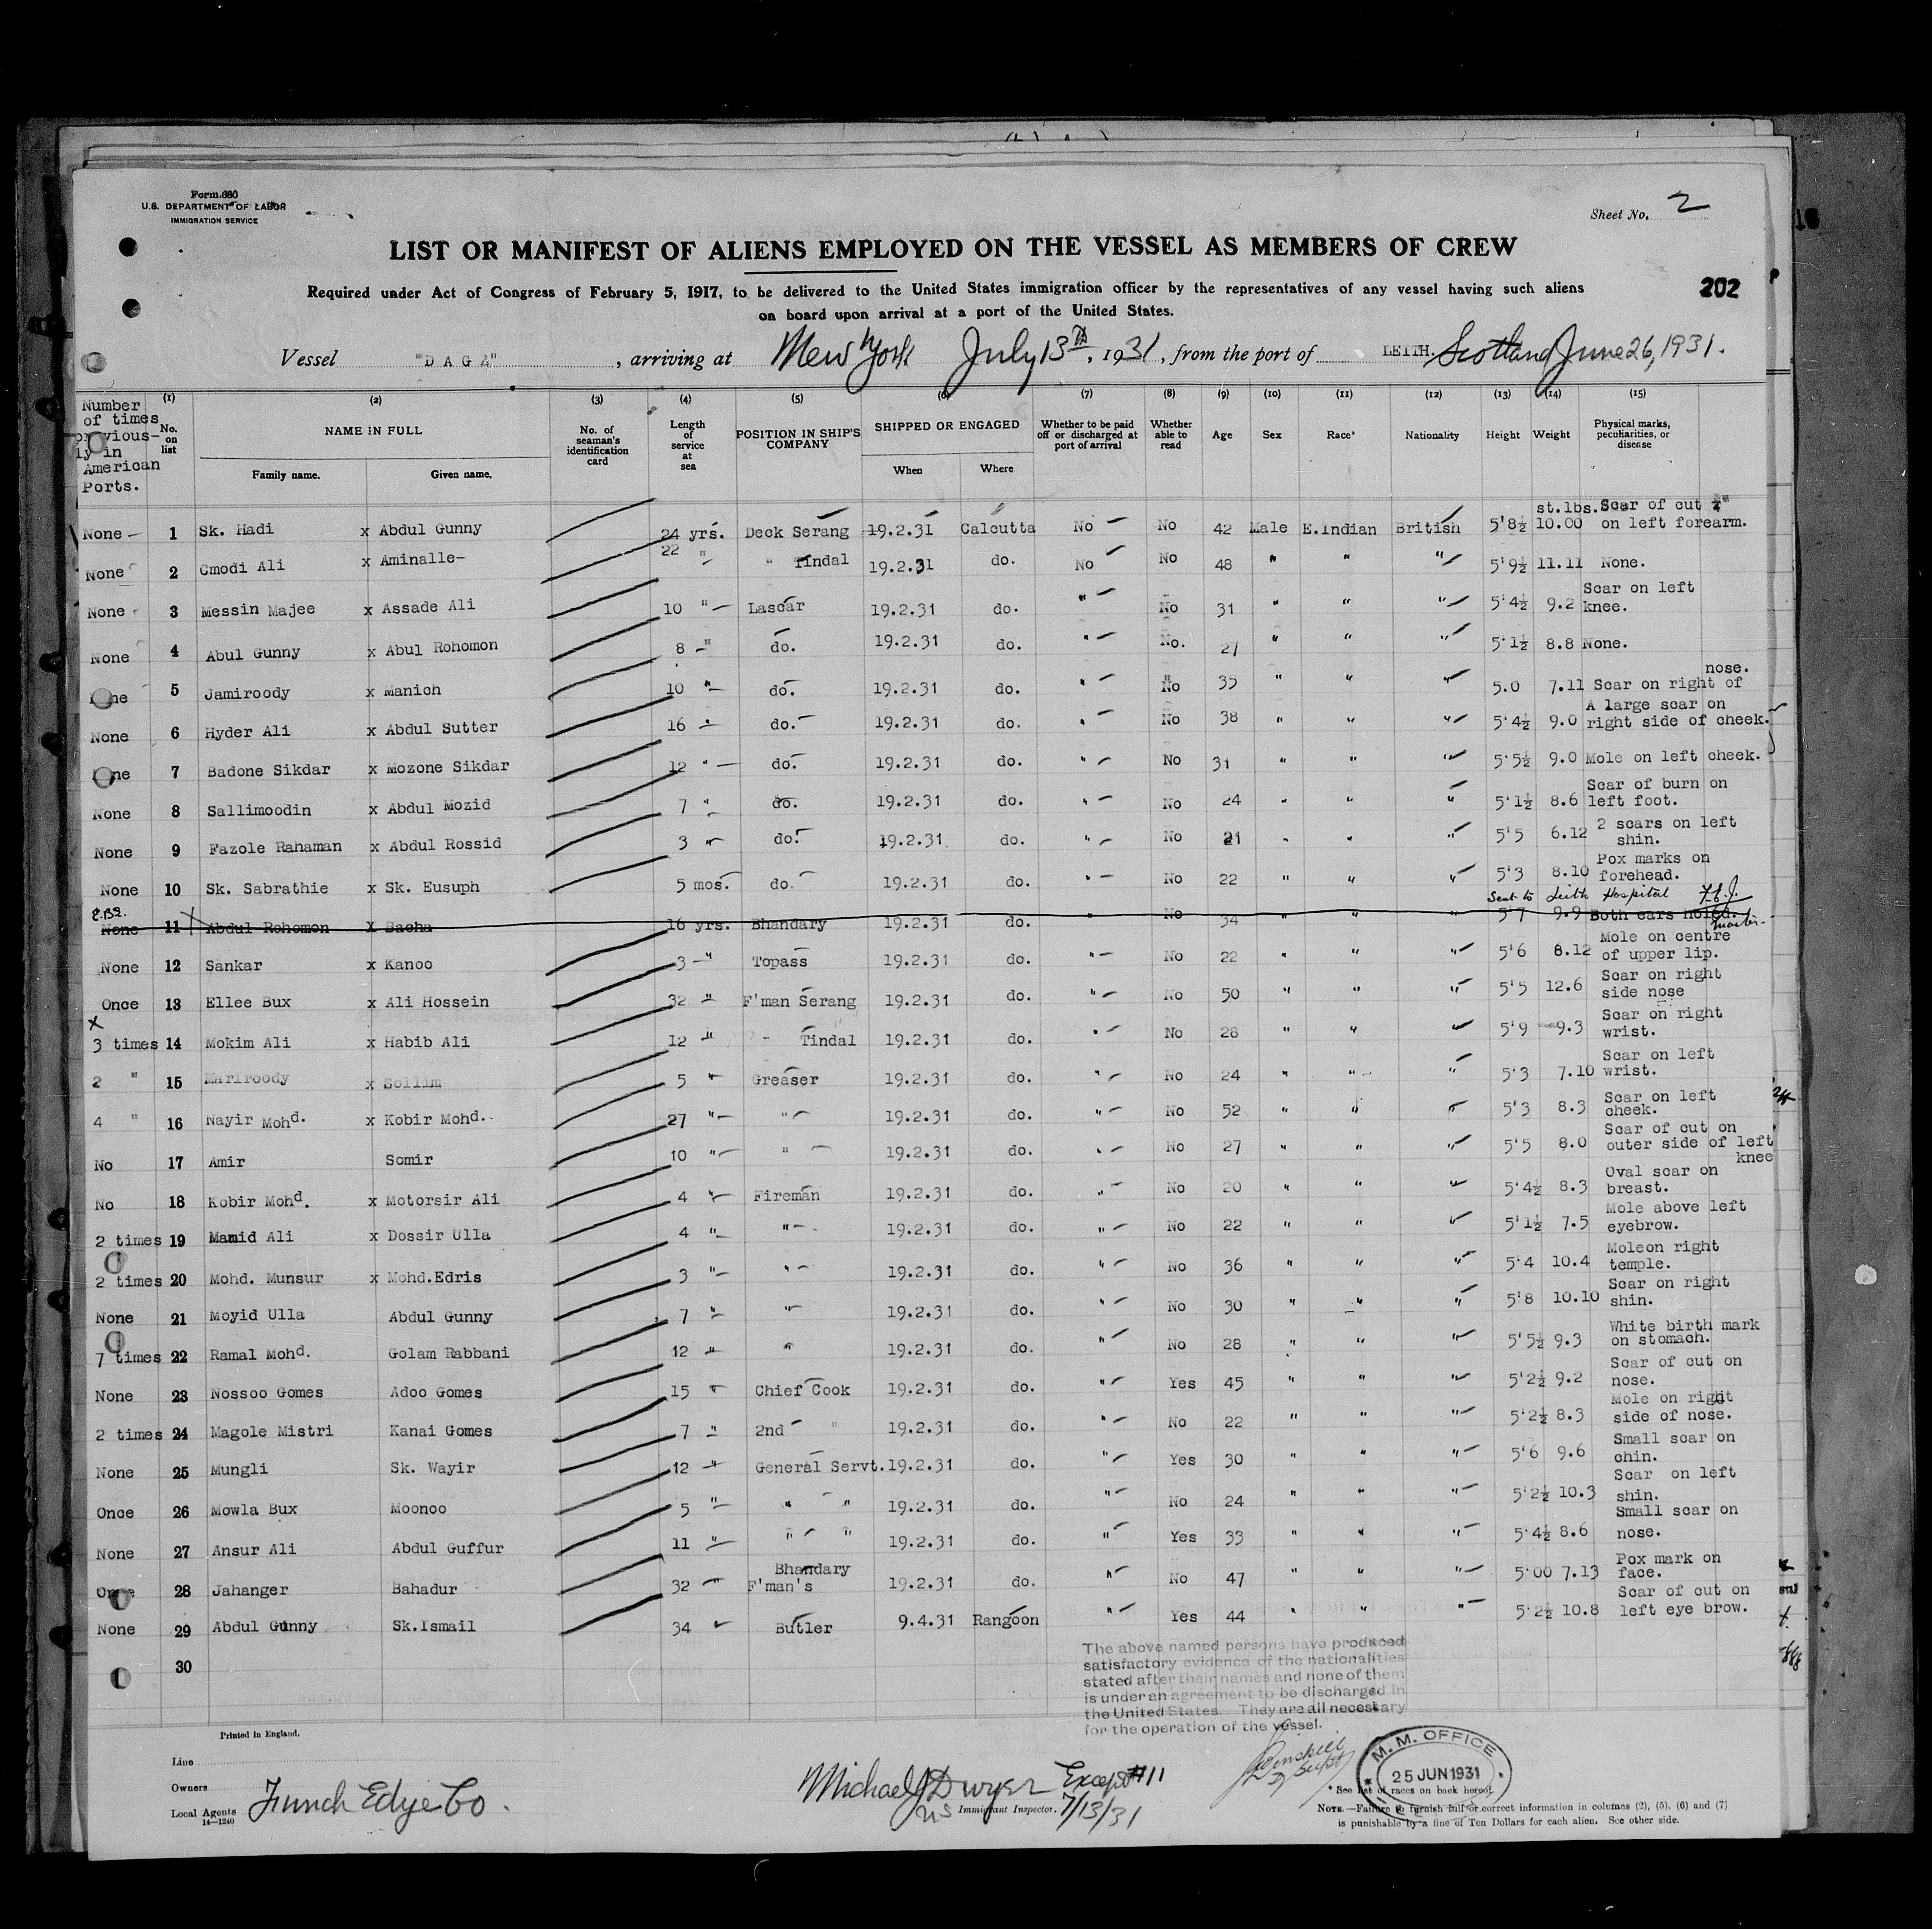 Form 680
U.S. DEPARTMENT OF LABOR
IMMIGRATION SERVICE
Sheet No. 2
LIST OR MANIFEST OF ALIENS EMPLOYED ON THE VESSEL AS MEMBERS OF CREW
Required under Act of Congress of February 5, 1917, to be delivered to the United States immigration officer by the representatives of any vessel having such aliens
on board upon arrival at a port of the United States.
202
Vessel , arriving at New York July 13th, 1931, from the port of LEITH. Scotland June 26, 1931.
Number of times previously in American Ports. (1) No. on list (2) NAME IN FULL Family name. Given name. (3) No. of seaman's identification card (4) Length of service at sea (5) POSITION IN SHIP'S COMPANY (6) SHIPPED OR ENGAGED When Where (7) Whether to be paid off or discharged at port of arrival (8) Whether able to read (9) Age (10) Sex (11) Race* (12) Nationality (13) Height (14) Weight (15) Physical marks, peculiarities, or disease
None 1 Sk. Hadi x Abdul Gunny 24 yrs. Deck Serang 19.2.31 Calcutta No No 42 Male E.Indian British 5'8½ st.lbs. 10.00 Scar of cut on left forearm.
None 2 Omodi Ali x Aminalle- 22 " " Tindal 19.2.31 do. No No 48 " " " 5'9½ 11.11 None.
None 3 Messin Majee x Assade Ali 10 " Lascar 19.2.31 do. " No 31 " " " 5'4½ 9.2 Scar on left knee.
None 4 Abul Gunny x Abul Rohomon 8 " do. 19.2.31 do. " No. 27 " " " 5'1½ 8.8 None.
None 5 Jamiroody x Manich 10 " do. 19.2.31 do. " No 35 " " " 5.0 7.11 Scar on right of nose.
None 6 Hyder Ali x Abdul Sutter 16 " do. 19.2.31 do. " No 38 " " " 5'4½ 9.0 A large scar on right side of cheek.
None 7 Badone Sikdar x Mozone Sikdar 12 " do. 19.2.31 do. " No 31 " " " 5'5½ 9.0 Mole on left cheek.
None 8 Sallimoodin x Abdul Mozid 7 " do. 19.2.31 do. " No 24 " " " 5'1½ 8.6 Scar of burn on left foot.
None 9 Fazole Rahaman x Abdul Rossid 3 " do. 19.2.31 do. " No 21 " " " 5'5 6.12 2 scars on left shin.
None 10 Sk. Sabrathie x Sk. Eusuph 5 mos. do. 19.2.31 do. " No 22 " " " 5'3 8.10 Pox marks on forehead.
Sent to Leith Hospital
None 11 Abdul Rohomon x Bacha 16 yrs. Bhandary 19.2.31 do. " No 34 " " " 5'7 9.9 Both ears holed.
Master
None 12 Sankar x Kanoo 3 " Topass 19.2.31 do. " No 22 " " " 5'6 8.12 Mole on centre of upper lip.
Once 13 Ellee Bux x Ali Hossein 32 " F'man Serang 19.2.31 do. " No 50 " " " 5'5 12.6 Scar on right side nose
x
3 times 14 Mokim Ali x Habib Ali 12 " " Tindal 19.2.31 do. " No 28 " " " 5'9 9.3 Scar on right wrist.
2 " 15 Mariroody x Sollim 5 " Greaser 19.2.31 do. " No 24 " " " 5'3 7.10 Scar on left wrist.
4 " 16 Nayir Mohd. x Kobir Mohd. 27 " " 19.2.31 do. " No 52 " " " 5'3 8.3 Scar on left cheek.
No 17 Amir Somir 10 " " 19.2.31 do. " No 27 " " " 5'5 8.0 Scar of cut on outer side of left knee
No 18 Kobir Mohd. x Motorsir Ali 4 " Fireman 19.2.31 do. " No 20 " " " 5'4½ 8.3 Oval scar on breast.
2 times 19 Mamid Ali x Dossir Ulla 4 " " 19.2.31 do. " No 22 " " " 5'1½ 7.5 Mole above left eyebrow.
2 times 20 Mohd. Munsur x Mohd.Edris 3 " " 19.2.31 do. " No 36 " " " 5'4 10.4 Moleon right temple.
None 21 Moyid Ulla Abdul Gunny 7 " " 19.2.31 do. " No 30 " " " 5'8 10.10 Scar on right shin.
7 times 22 Ramal Mohd. Golam Rabbani 12 " " 19.2.31 do. " No 28 " " " 5'5½ 9.3 White birth mark on stomach.
None 23 Nossoo Gomes Adoo Gomes 15 " Chief Cook 19.2.31 do. " Yes 45 " " " 5'2½ 9.2 Scar of cut on nose.
2 times 24 Magole Mistri Kanai Gomes 7 " 2nd " 19.2.31 do. " No 22 " " " 5'2½ 8.3 Mole on right side of nose.
None 25 Mungli Sk. Wayir 12 " General Servt. 19.2.31 do. " Yes 30 " " " 5'6 9.6 Small scar on chin.
Once 26 Mowla Bux Moonoo 5 " " " 19.2.31 do. " No 24 " " " 5'2½ 10.3 Scar on left shin.
None 27 Ansur Ali Abdul Guffur 11 " " " 19.2.31 do. " Yes 33 " " " 5'4½ 8.6 Small scar on nose.
Once 28 Jahanger Bahadur 32 " Bhandary F'man's 19.2.31 do. " No 47 " " " 5'00 7.13 Pox mark on face.
None 29 Abdul Gunny Sk.Ismail 34 " Butler 9.4.31 Rangoon " Yes 44 " " " 5'2½ 10.8 Scar of cut on left eye brow.
30
The above named persons have produced
satisfactory evidence of the nationalities
stated after their names and none of them
is under an agreement to be discharged in
the United States. They are all necessary
for the operation of the vessel.
Printed in England.
Line
Owners
Local Agents Funch Edye Co.
14—1240
Michael J Dwyer Except #11
US Immigrant Inspector. 7/13/31
M. M. OFFICE
25 JUN 1931
* See list of races on back hereof.
NOTE.—Failure to furnish full or correct information in columns (2), (5), (6) and (7)
is punishable by a fine of Ten Dollars for each alien. See other side.